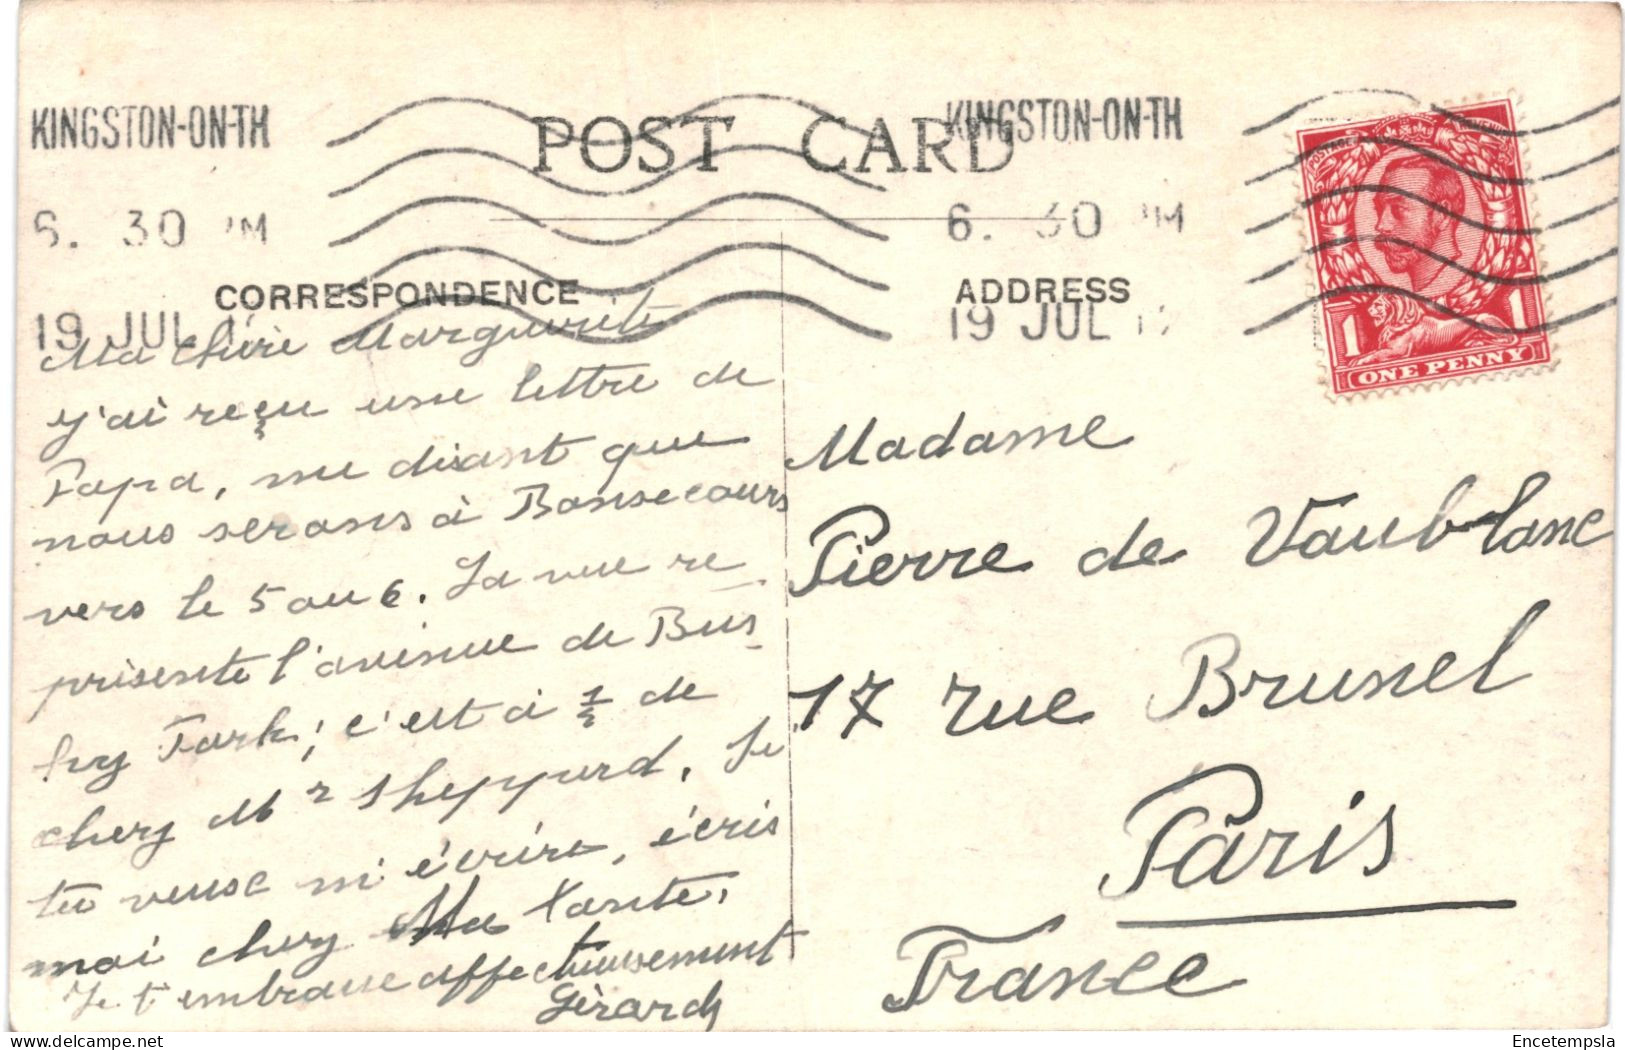 POST CARD
KINGSTON-ON-TH
6. 30 PM
19 JUL 1
KINGSTON-ON-TH
6. 30 PM
19 JUL 12
CORRESPONDENCE
ADDRESS
POSTAGE REVENUE
1 1
ONE PENNY
Ma chère Marguerite
j'ai reçu une lettre de
Papa, me disant que
nous serons à Bonsecours
vers le 5 ou 6. La vue re
présente l'avenue de Bus
hy Park; c'est à ½ de
chez Mr Sheppard. Je
tu veux m'écrire, écris
moi chez Ma Tante,
Je t'embrasse affectueusement
Gérard
Madame
Pierre de Vaublanc
17 rue Brunel
Paris
France
Encetempsla